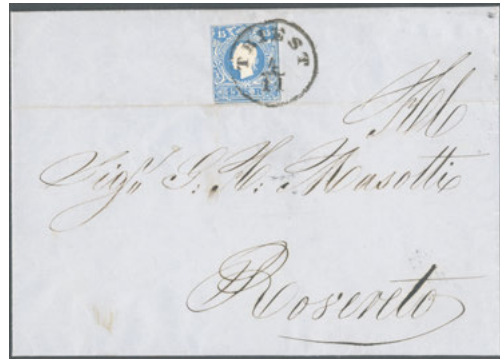 15 KR
TRIEST
4
11
All
Sig.r G: H: Masotti
Rovereto